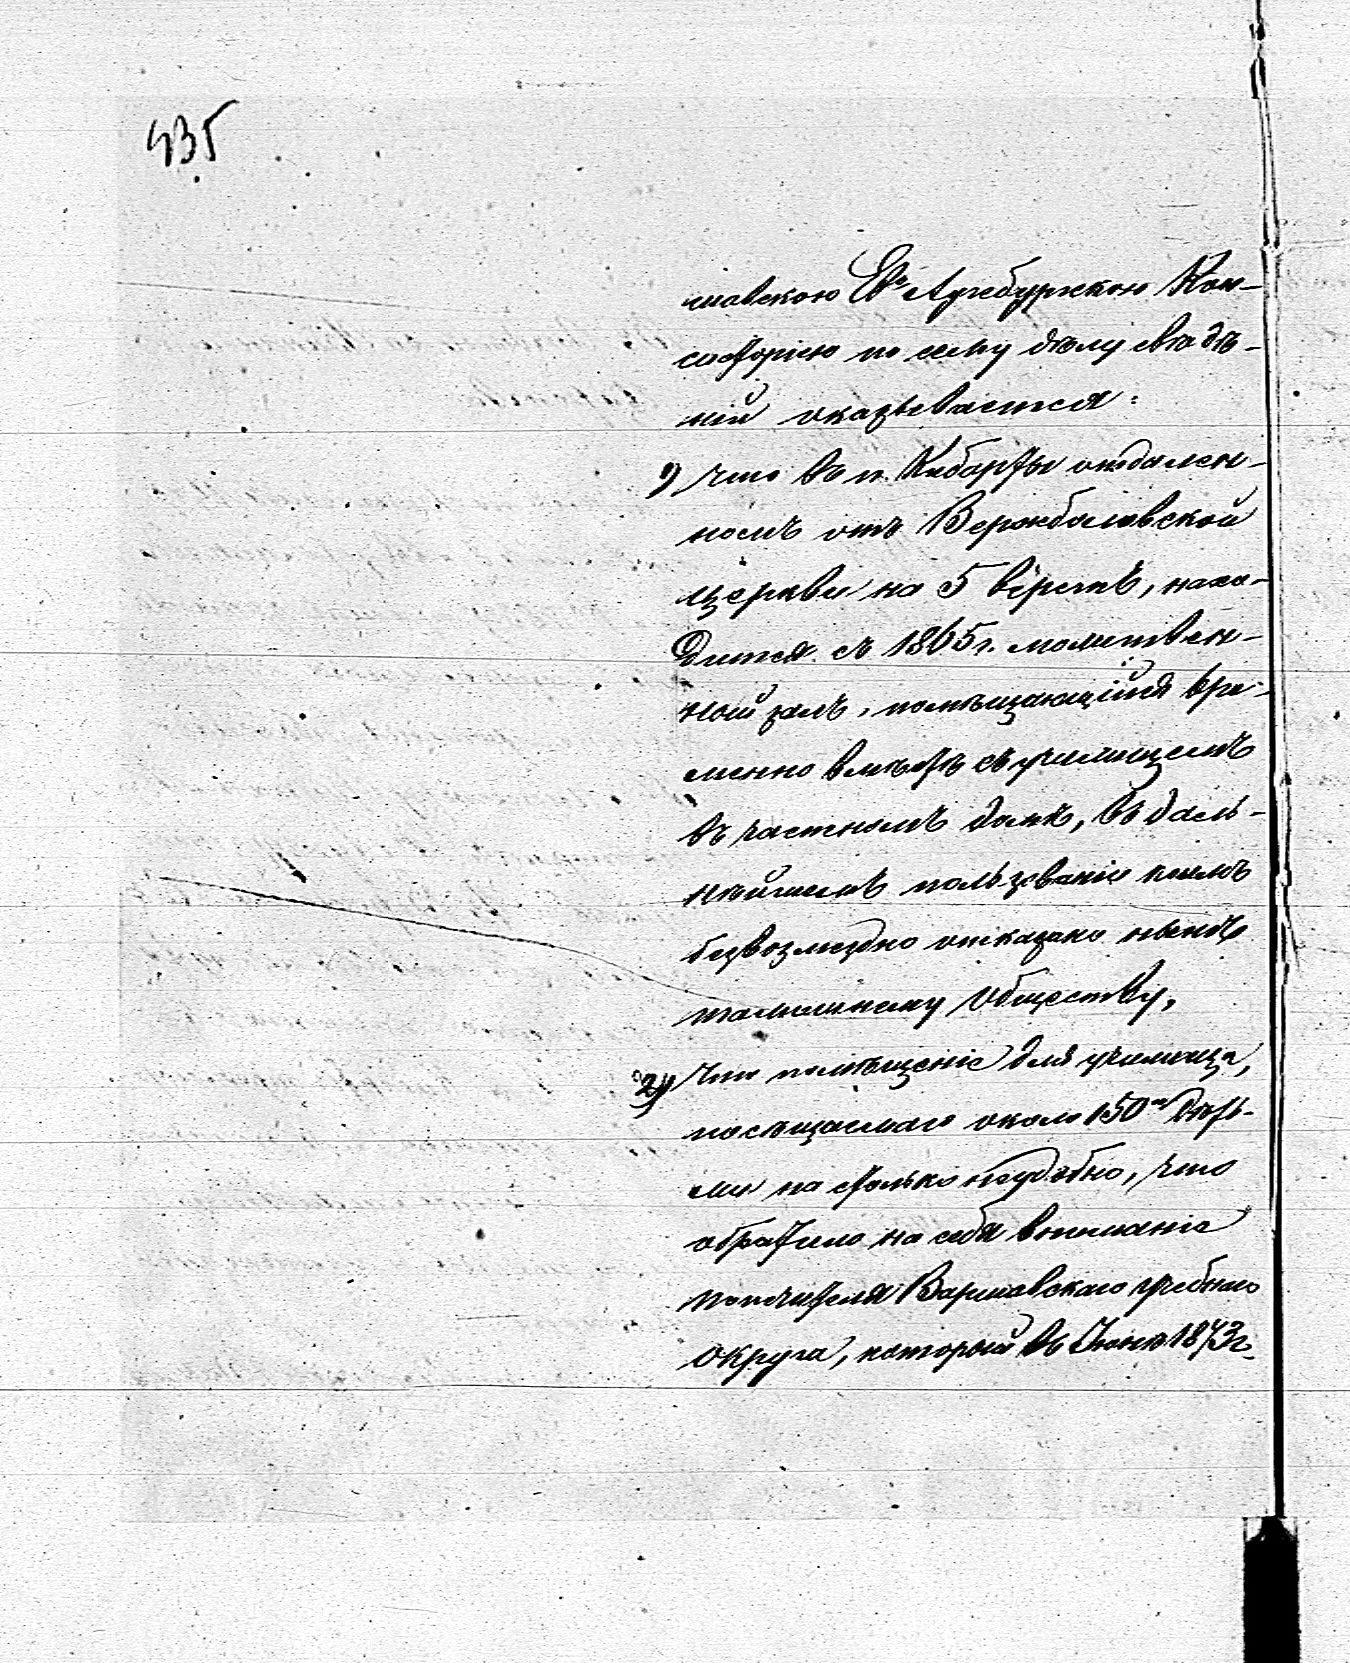 435
шавскою Ев. Аугсбургскою Кон-
систоріею по сему дѣлу свѣдѣ-
ній оказывается:
1) Что въ п. Кибарты отдален-
номъ отъ Вержболовской
церкви на 5 верстъ, нахо-
дится съ 1865 г. молитвен-
ный залъ, помѣщающійся вре-
менно вмѣстѣ съ училищемъ
въ частномъ домѣ, въ даль-
нѣйшемъ пользованіи коимъ
безвозмездно отказано нынѣ
тамошнему обществу,
2) Что помѣщеніе для училища,
посѣщаемаго около 150 дѣть-
ми на столько неудобно, что
обратило на себя вниманіе
попечителя Варшавскаго учебнаго
округа, который въ Іюнѣ 1873 г.